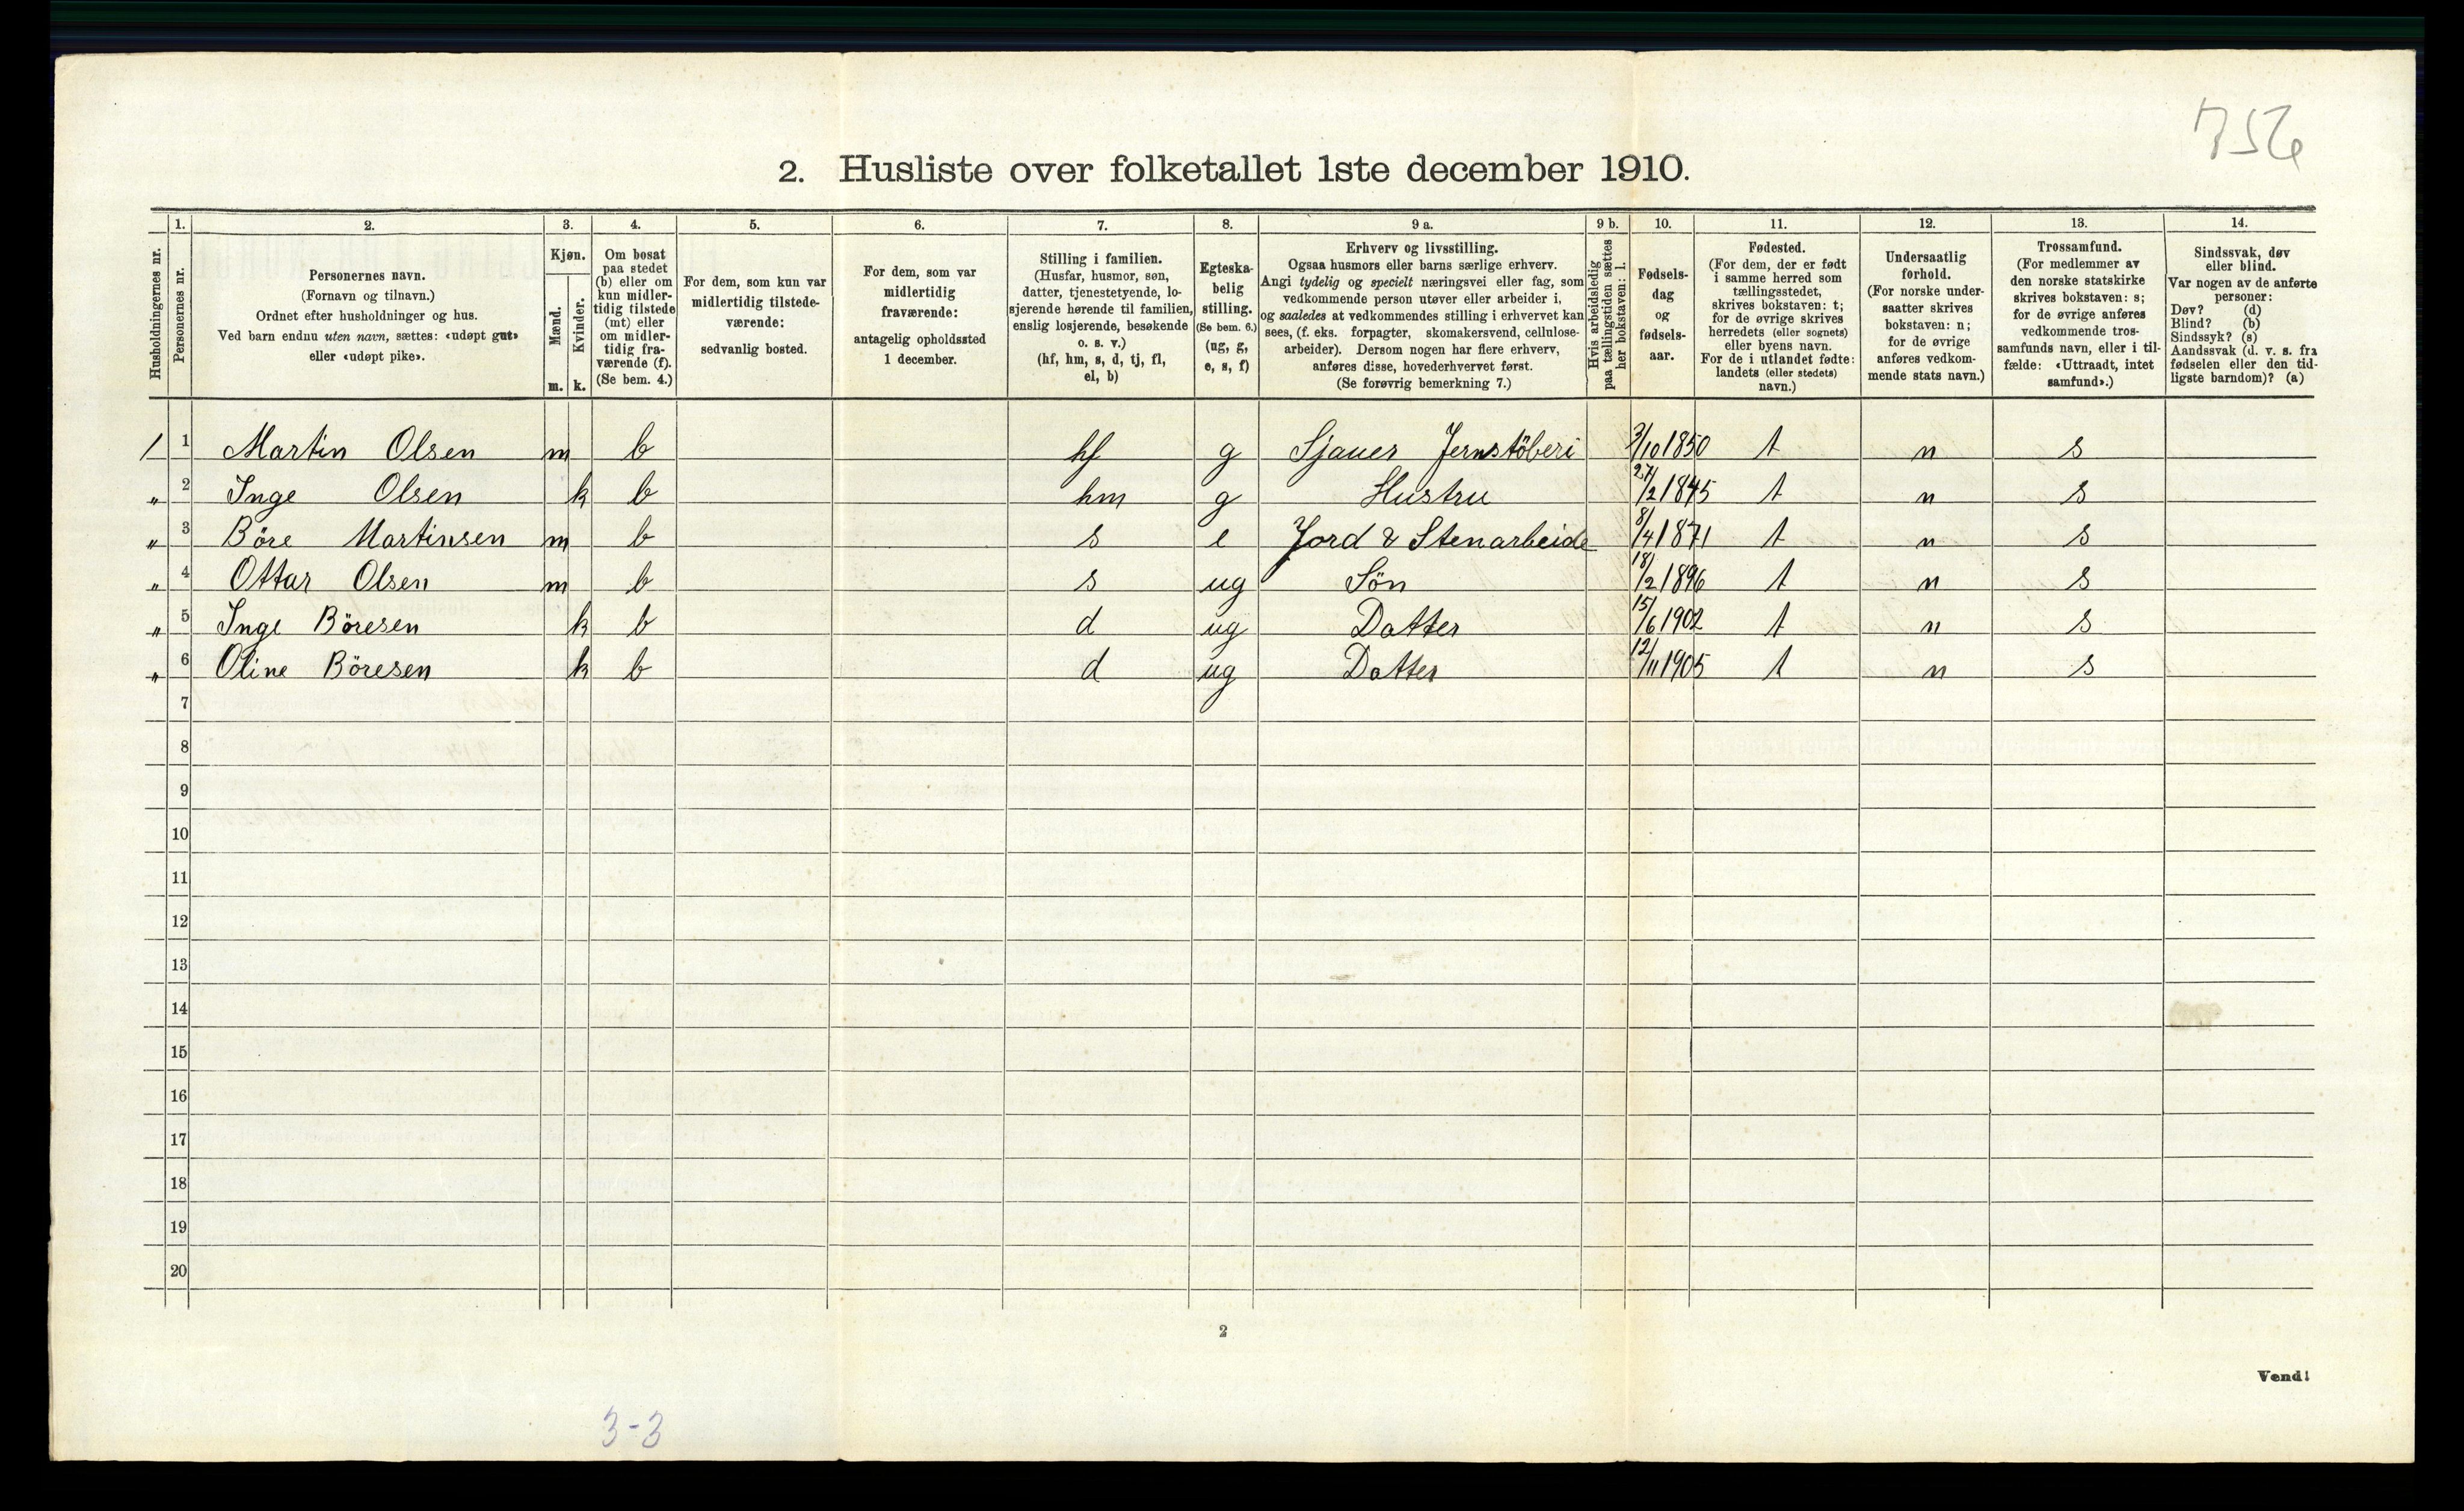 756
2. Husliste over folketallet 1ste december 1910.
Husholdningernes nr.
1. Personernes nr.
2. Personernes navn.
(Fornavn og tilnavn.)
Ordnet efter husholdninger og hus.
Ved barn endnu uten navn, sættes: «udøpt gut»
eller «udøpt pike».
3. Kjøn.
Mænd. m.
Kvinder. k.
4. Om bosat
paa stedet
(b) eller om
kun midler-
tidig tilstede
(mt) eller
om midler-
tidig fra-
værende (f).
(Se bem. 4.)
5. For dem, som kun var
midlertidig tilstede-
værende:
sedvanlig bosted.
6. For dem, som var
midlertidig
fraværende:
antagelig opholdssted
1 december.
7. Stilling i familien.
(Husfar, husmor, søn,
datter, tjenestetyende, lo-
sjerende hørende til familien,
enslig losjerende, besøkende
o. s. v.)
(hf, hm, s, d, tj, fl,
el, b)
8. Egteska-
belig
stilling.
(Se bem. 6.)
(ug, g,
e, s, f)
9 a. Erhverv og livsstilling.
Ogsaa husmors eller barns særlige erhverv.
Angi tydelig og specielt næringsvei eller fag, som
vedkommende person utøver eller arbeider i,
og saaledes at vedkommendes stilling i erhvervet kan
sees, (f. eks. forpagter, skomakersvend, cellulose-
arbeider). Dersom nogen har flere erhverv,
anføres disse, hovederhvervet først.
(Se forøvrig bemerkning 7.)
9 b. Hvis arbeidsledig
paa tællingstiden sættes
her bokstaven: l.
10. Fødsels-
dag
og
fødsels-
aar.
11. Fødested.
(For dem, der er født
i samme herred som
tællingsstedet,
skrives bokstaven: t;
for de øvrige skrives
herredets (eller sognets)
eller byens navn.
For de i utlandet fødte:
landets (eller stedets)
navn.)
12. Undersaatlig
forhold.
(For norske under-
saatter skrives
bokstaven: n;
for de øvrige
anføres vedkom-
mende stats navn.)
13. Trossamfund.
(For medlemmer av
den norske statskirke
skrives bokstaven: s;
for de øvrige anføres
vedkommende tros-
samfunds navn, eller i til-
fælde: «Uttraadt, intet
samfund».)
14. Sindssvak, døv
eller blind.
Var nogen av de anførte
personer:
Døv? (d)
Blind? (b)
Sindssyk? (s)
Aandssvak (d. v. s. fra
fødselen eller den tid-
ligste barndom)? (a)
1 1 Martin Olsen m b hf g Sjauer Jernstöberi 3/10 1850 t n s
" 2 Inge Olsen k b hm g Hustru 27/2 1845 t n s
" 3 Böre Martinsen m b s e Jord & Stenarbeide 8/4 1871 t n s
" 4 Ottar Olsen m b s ug Sön 18/2 1896 t n s
" 5 Inge Böresen k b d ug Datter 15/6 1902 t n s
" 6 Oline Böresen k b d ug Datter 12/11 1905 t n s
7
8
9
10
11
12
13
14
15
16
17
18
19
20
2
Vend!
3-3